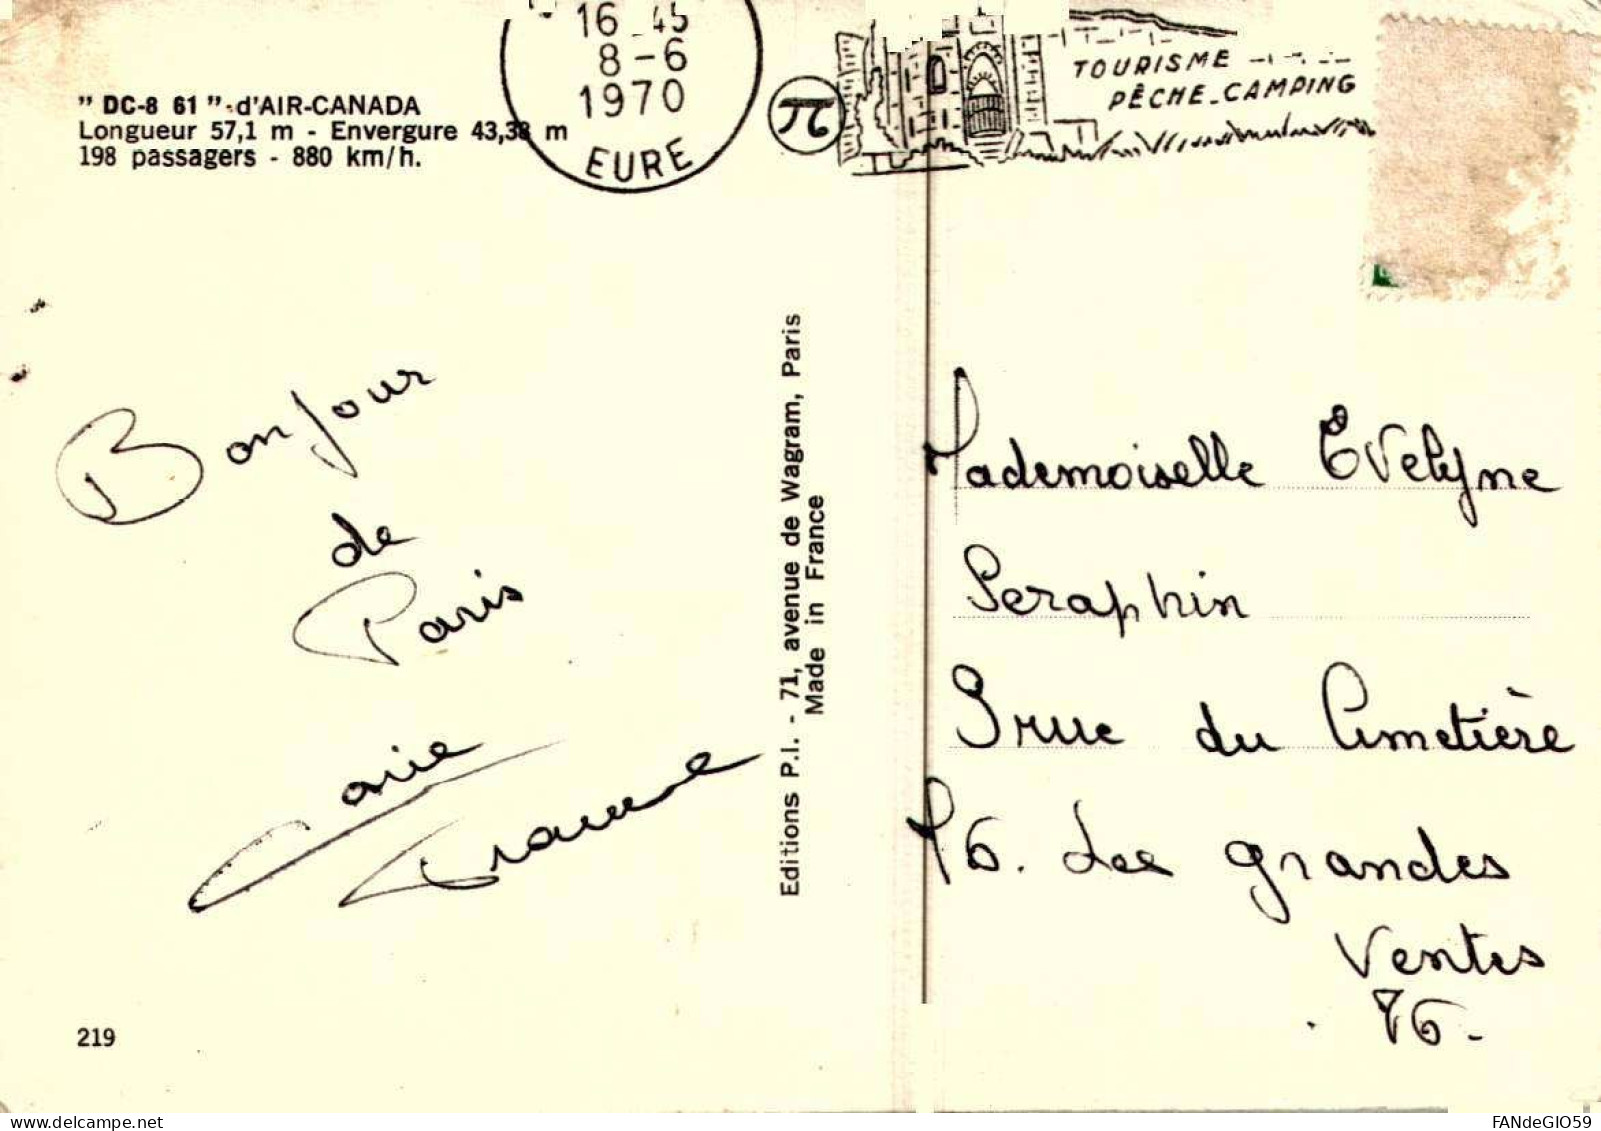 " DC-8 61 " d'AIR-CANADA
Longueur 57,1 m - Envergure 43,38 m
198 passagers - 880 km/h.
16 45
8-6
1970
EURE
TOURISME
PÊCHE_CAMPING
Bonjour
de
Paris
Editions P.I. - 71, avenue de Wagram, Paris
Made in France
Mademoiselle Evelyne
Seraphin
rue du Cimetière
76. Les grandes
Ventes
76.
219
FANdeGIO59